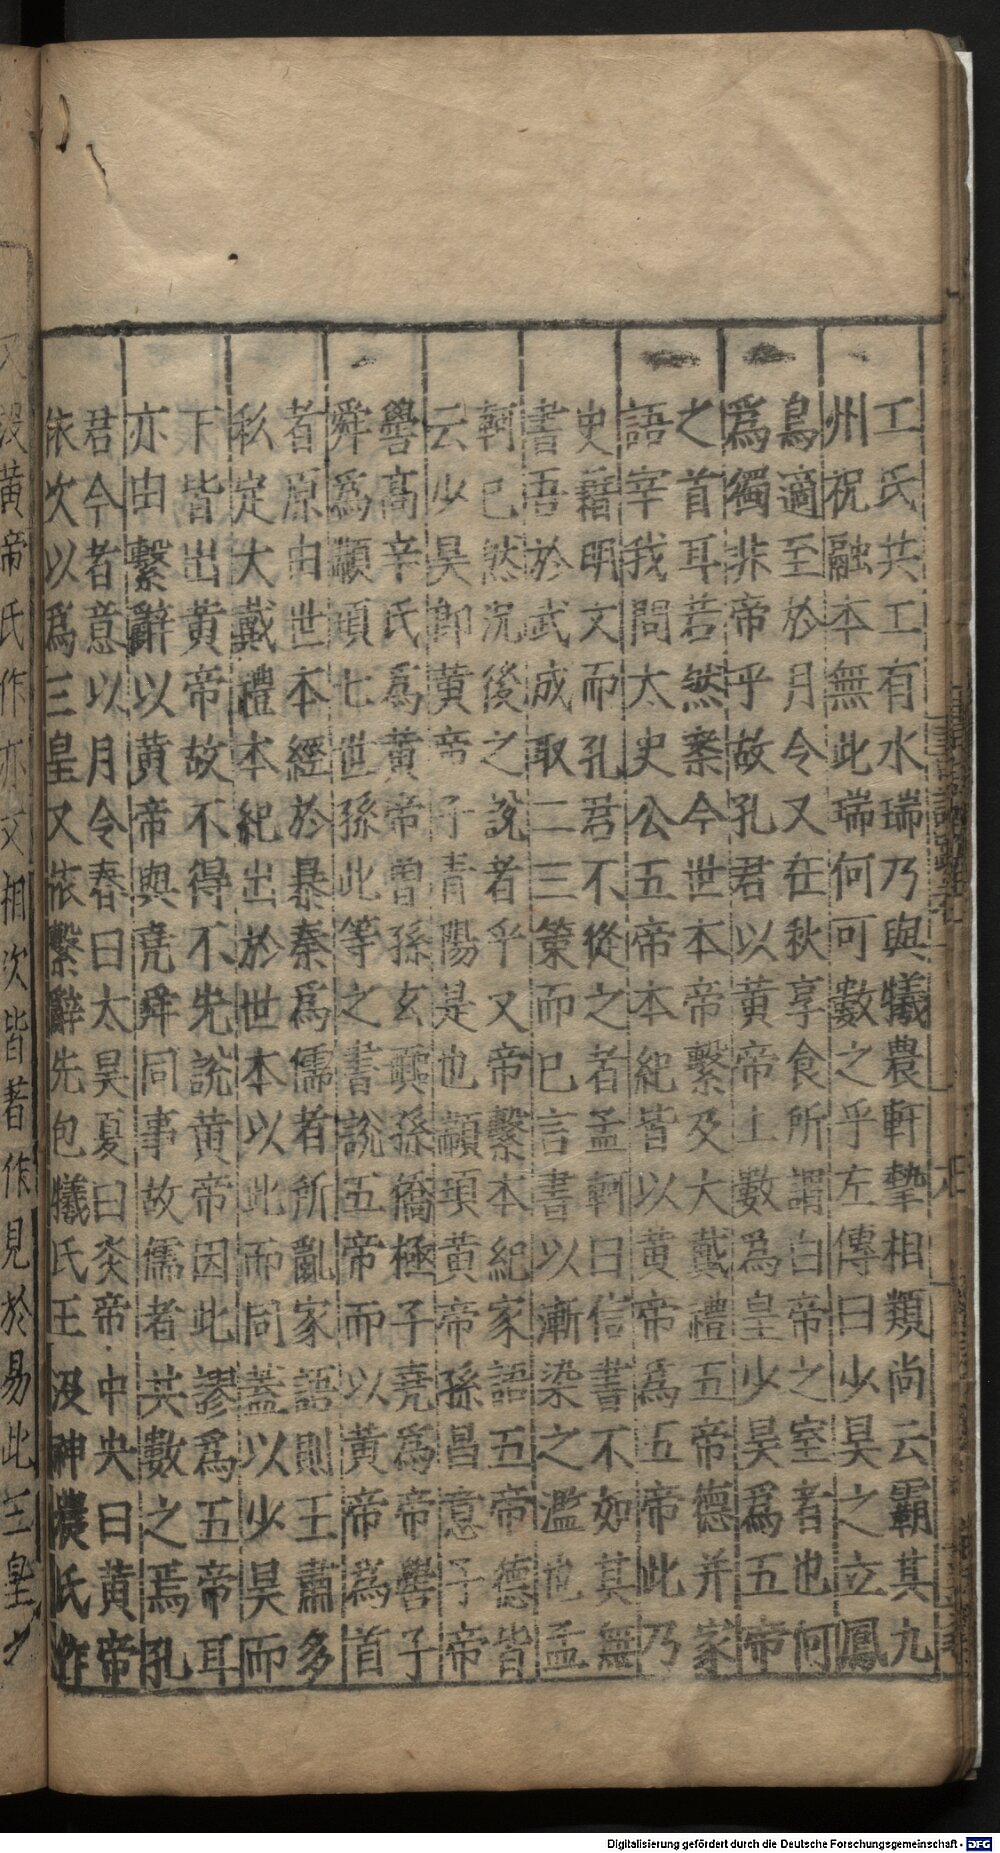 工氏共工有水瑞乃與犧農軒摯相類尚云霸其九
州祝融本無此瑞何可數之乎左傳曰少昊之立鳳
鳥適至於月令又在秋享食所謂白帝之室者也何
爲獨非帝乎故孔君以黃帝上數爲皇少昊爲五帝
之首耳若然案今世本帝繫及大戴禮五帝德并家
語宰我問太史公五帝本紀皆以黃帝爲五帝此乃
史藉明文而孔君不從之者孟軻曰信書不如其無
書吾於武成取二三策而已言書以漸染之濫也孟
軻已然況後之說者乎又帝繫本紀家語五帝德皆
云少昊卽黃帝子青陽是也顓頊黃帝孫昌意子帝
嚳高辛氏爲黃帝曾孫玄囂孫僑極子堯爲帝嚳子
舜爲顓頊七世孫此等之書說五帝而以黃帝爲首
者原由世本經於暴秦爲儒者所亂家語則王肅多
私定大戴禮本紀出於世本以此而同蓋以少昊而
下皆出黃帝故不得不先說黃帝因此謬爲五帝耳
亦由繫辭以黃帝與堯舜同事故儒者共數之焉孔
君今者意以月令春曰太昊夏曰炎帝中央曰黃帝
依次以爲三皇又依繫辭先包犧氏王沒神農氏作
又沒黃帝氏作亦文相次皆著作見於易此三皇之
Digitalisierung gefördert durch die Deutsche Forschungsgemeinschaft - DFG